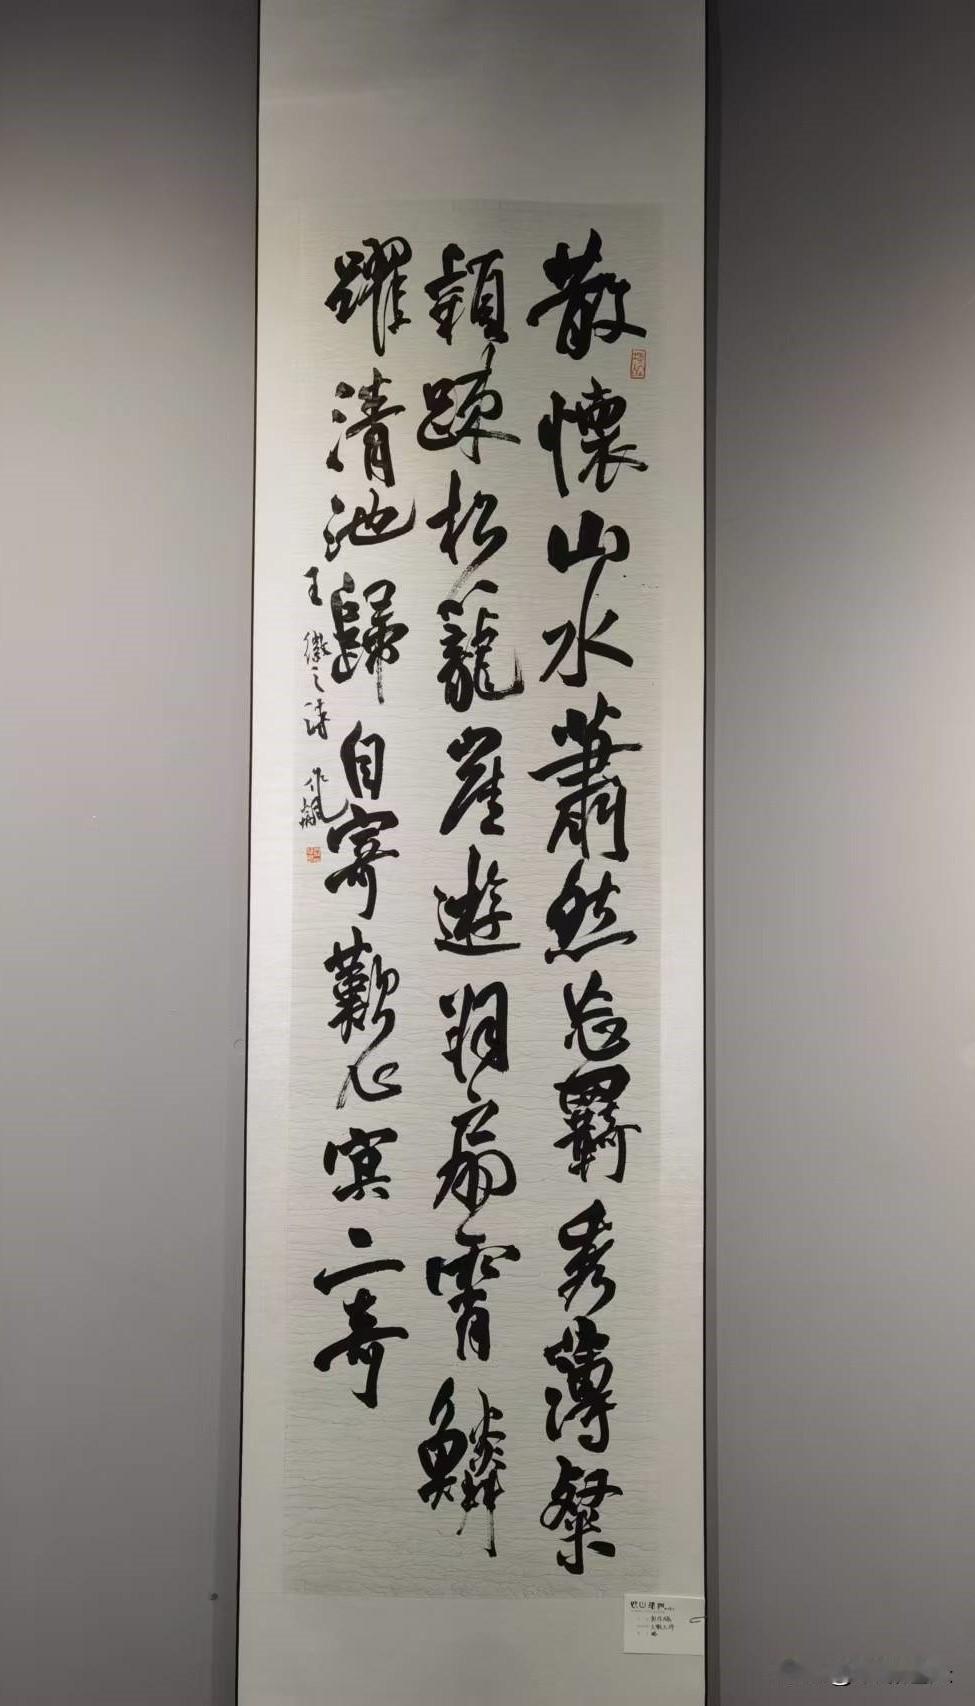 散懷山水蕭然忘羈秀薄粲
穎踈松籠崖遊羽扇霄鱗
躍清池歸自寄歡心冥二奇
王徽之詩